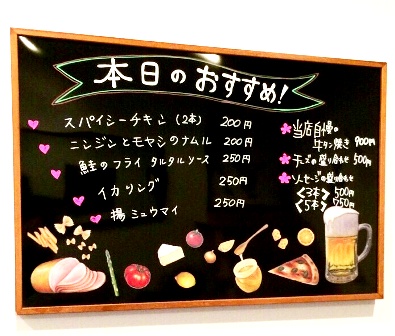 本日のおすすめ!
スパイシーチキン (2本) 200円
ニンジンとモヤシのナムル 200円
鮭のフライ タルタルソース 250円
イカリング 250円
揚シュウマイ 250円
当店自慢の
牛タン焼き 900円
チーズの盛り合わせ 500円
ソーセージの盛り合わせ
<3本> 500円
<5本> 750円